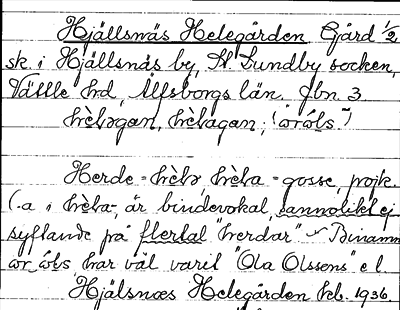 Hjällsnäs Helegården Gård 1/2
sk. i Hjällsnäs by, St. Lundby socken,
Vättle hd, Älfsborgs län. Jbn. 3
hèləgan, hèlagan;
Herde = hèlə, hèla = gosse, pojk.
(-a i hèla-, är bindevokal, sannolikt ej
syftande på flertal "herdar" Binamn
har väl varit "Ola Olssons" el.
Hjälsnæs Helegården kb. 1936.